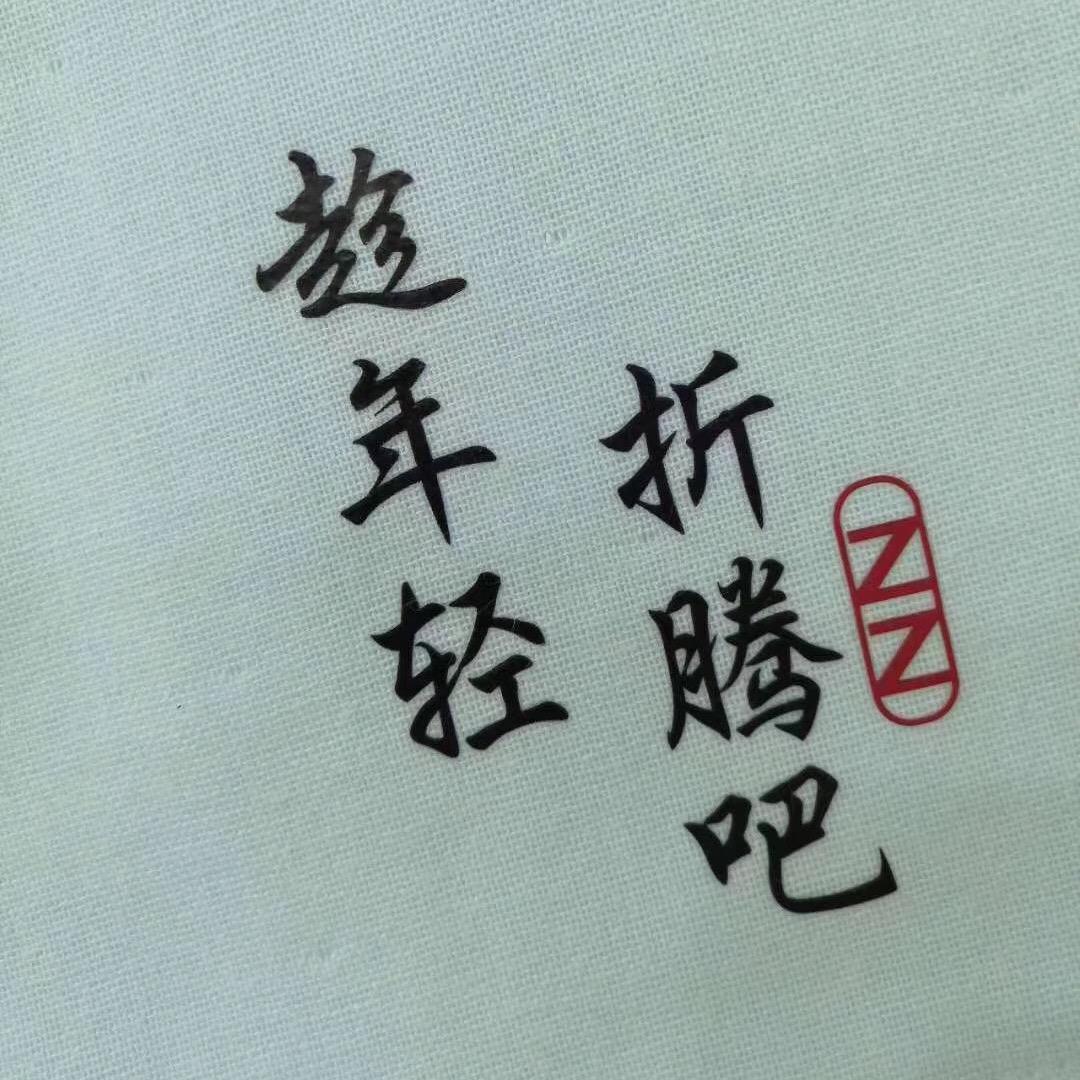 趁年轻
折腾吧
NN